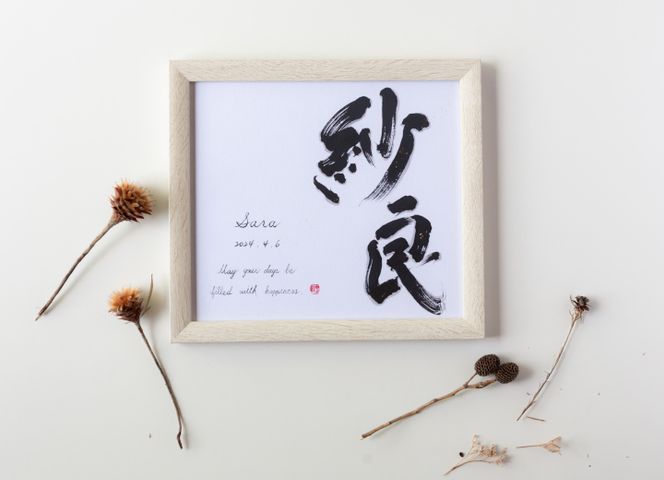 紗良
Sara
2024.4.6
May your days be
filled with happiness.